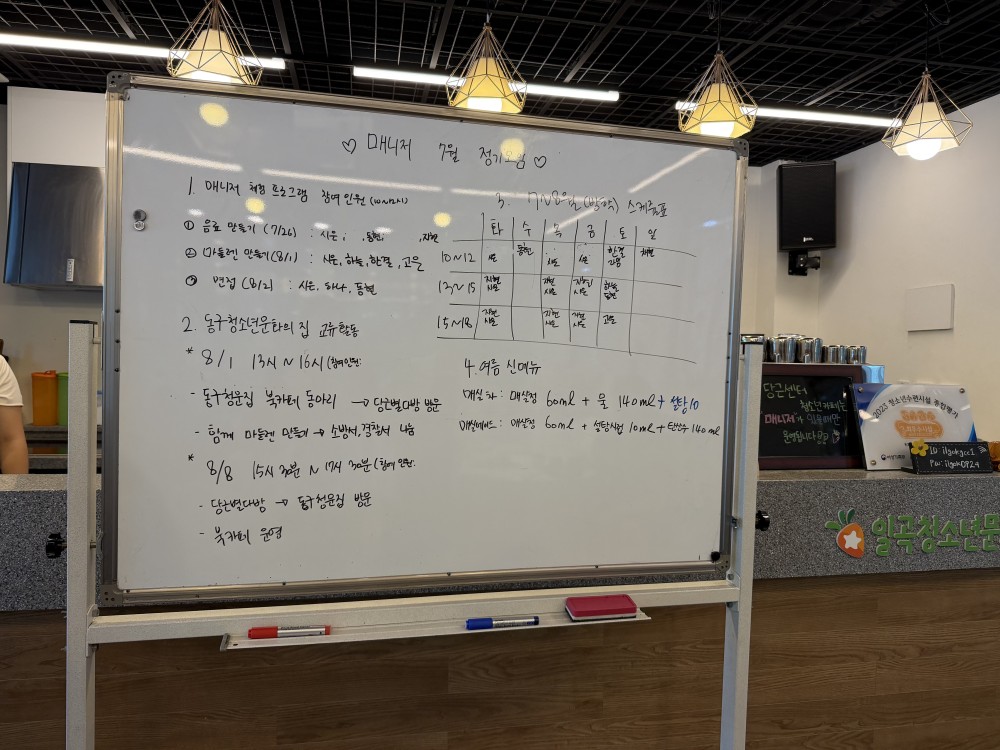 ♡ 매니저 7월 정기모임 ♡
1. 매니저 체험 프로그램 참여 인원 (10시~12시)
① 음료 만들기 (7/26) : 시온, , 동현, , 지현
② 마들렌 만들기 (8/1) : 시온, 하늘, 한결, 고은
③ 면접 (8/2) : 시온, 하나, 동현
2. 동구청소년문화의 집 교류활동
* 8/1 13시 ~ 16시 (참여인원:
- 동구청문집 북카페 동아리 → 당근별다방 방문
- 함께 마들렌 만들기 → 소방서, 경찰서 나눔
* 8/8 15시 30분 ~ 17시 30분 (참여 인원:
- 당근별다방 → 동구청문집 방문
- 북카페 운영
3. 7~8월 (방학) 스케줄표
화 수 목 금 토 일
10~12 동현 한결
13~15 지현 시온 지현 시온 시온 하늘 동현
15~18 지현 시온 지현 시온 지현 시온 고은
4. 여름 신메뉴
매실차 : 매실청 60ml + 물 140ml + 설탕10
매실에이드 : 매실청 60ml + 설탕시럽 10ml + 탄산수 140ml
당근센터
청소년카페는
매니저가 있을때만
운영됩니다
2023 청소년수련시설 종합평가
최우수시설
여성가족부
ID ilgokycc1
PW: ilgok0924
일곡청소년문